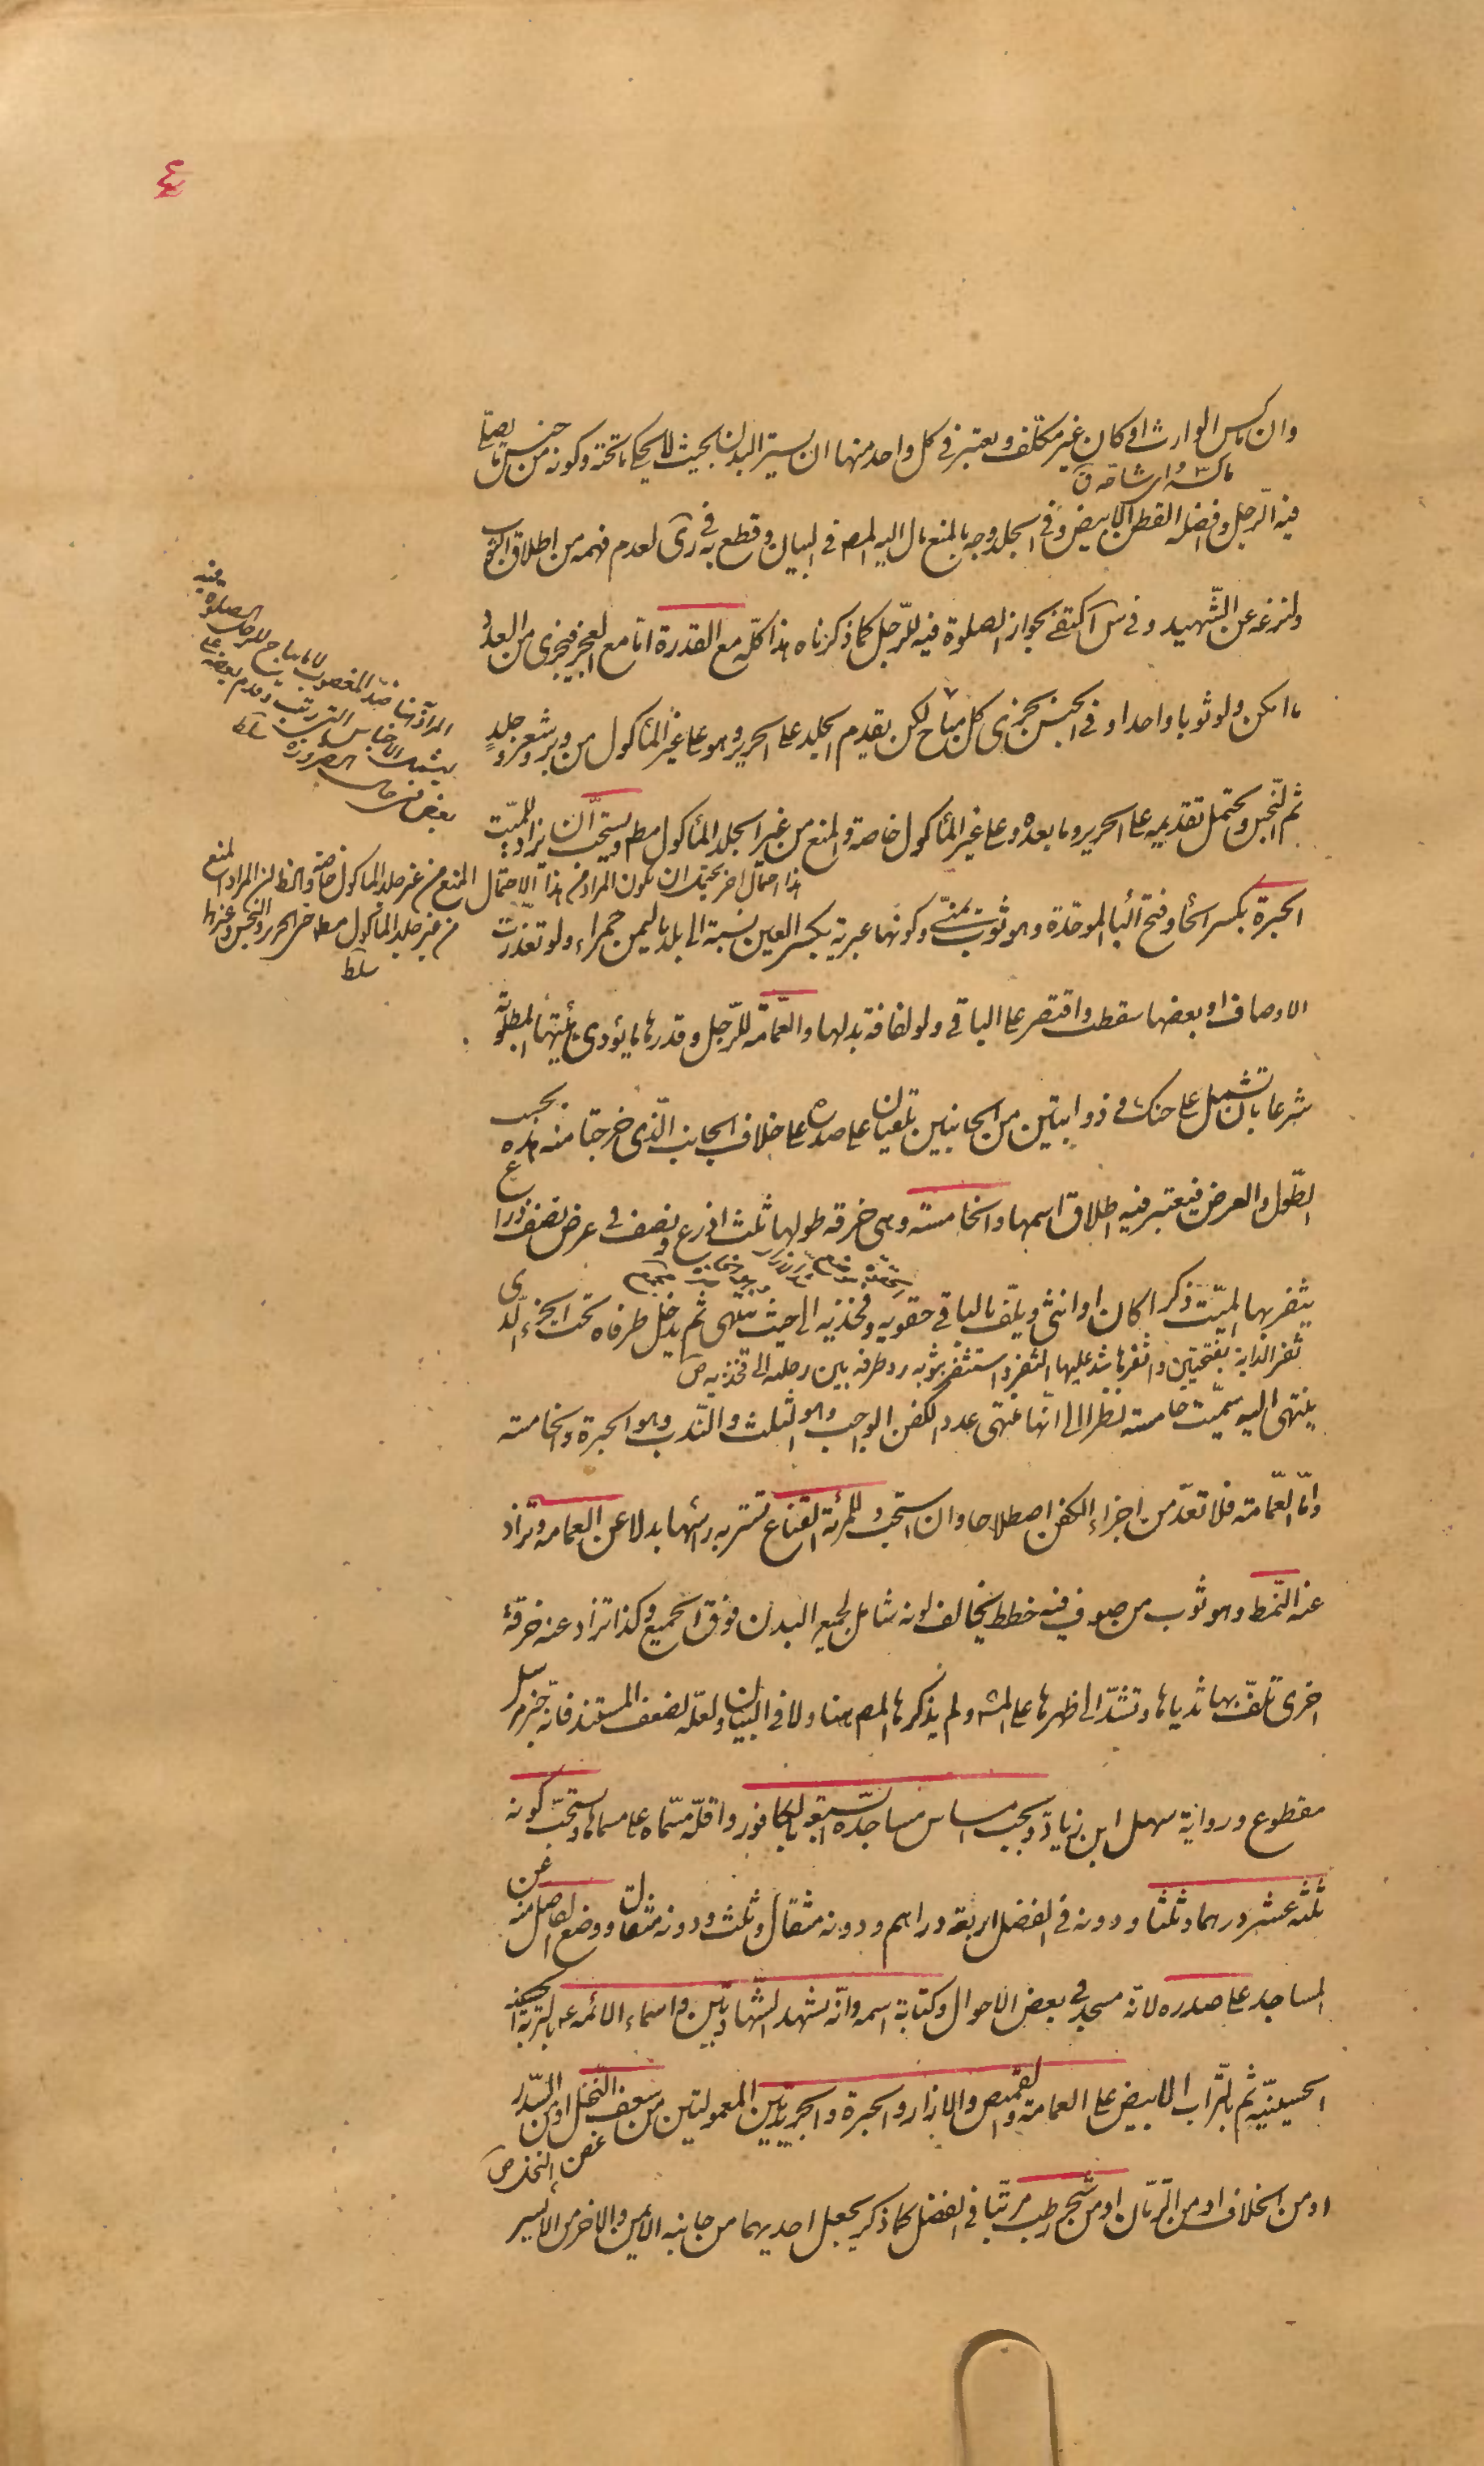 وان ماكس الوارث او كان غير مكلف ويعتبر في كل واحد منها ان يستر البدن بحيث لا يحكى ما تحته وكونه من جنس ما يصلى
فيه الرّجل وافضله القطن الابيض وفي الجلد وجه بالمنع مال اليه المصه في البيان وقطع به في رى لعدم فهمه من اطلاق الثوب
ولنزعه عن الشّهيد وفي س اكتفى بجواز الصلوة فيه للرّجل كما ذكرناه هذا كلّه مع القدرة امّا مع العجز فيجزى من العدد
ما امكن ولو ثوبا واحدا وفي الجنس يجزى كل مباح لكن يقدم الجلد على الحرير وهو على غير المأكول من وبر وشعر وجلدٍ
ثم النّجس ويحتمل تقديمه على الحرير وما بعده وعلى غير المأكول خاصة والمنع من غير الجلد المأكول مطم ويستحبّ ان يزاد للميّت
الحبرة بكسر الحا وفتح البا الموحّدة وهو ثوب يمنىّ وكونها عبرية بكسر العين نسبة الى بلد باليمن حمراء ولو تعذّرت
الاوصاف او بعضها سقطت واقتصر على الباقي ولو لفافة بدلها والعمّامة للرّجل وقدرها ما يؤدى هيئتها المطلوبة
شرعا بان تشمل على حنك و ذوابتين من الجانبين تلقيان على صدره على خلاف الجانب الّذى خرجتا منه هذه بحسب
الطّول والعرض فيعتبر فيه اطلاق اسمها والخامسة وهى خرقه طولها ثلث اذرع ونصف في عرض نصف ذراع
يثفر بها الميّت ذكرا كان او انثى ويلّف بالباقي حقويه وفخذيه الى حيث ينتهى ثم يدخل طرفاه تحت الجزء الّذى
ثفر الدابة بفتحتين واثفرها شد عليها الثفر واستثفر بثوبه رد طرفه بين رجليه الى فخذيه ص
ينتهى اليه سمّيت خامسه نظرا الى انّها منتهى عدد الكفن الواجب وهو الثّلث والنّدب وهو الحبرة والخامسته
وامّا العمّامته فلا تعدّ من اجزاء الكفن اصطلاحا وان استحب وللمرئة القناع تستتر به رئسها بدلا عن العمامه وتزاد
عنه النّمط وهو ثوب من صوف فيه خطط يخالف لونه شامل لجميع البدن فوق الجميع وكذا تزاد عنه خرقة
اخرى تلفّ بها ثدياها وتشدّ الى ظهرها على المشه ولم يذكرها المصه هنا ولا في البيان ولعلّه لضعف المستند فانّه خبر مرسل
مقطوع ورواية سهل ابن زياد ويجب امساس مساجده السّبعة بالكافور واقلّه مسّماه على مسمّاها ويستحبّ كونه
ثلثه عشر درهما وثلثا ودونه في الفضل اربعة دراهم ودونه مثقال وثلث ودونه مثقال ووضع الفاضل منه عن
المساجد على صدره لانّه مسجد في بعض الاحوال وكتابة اسمه وانّه يشهد الشّهادتين واسماء الائمه ع بالتربة
الحسينيّه ثم بالتّراب الابيض على العمامة والقميص والازار والحبرة والجريدتين المعمولتين من سعف النّخل او من السّدر
او من الخلاف او من الرّمّان او من شجر رطب مرتّبا في الفضل كما ذكر يجعل احديهما من جانبه الايمن والاخر من الايسر
هذا احتمال اخر يحتمل ان يكون المراد من هذا الاحتمال المنع من غير جلد المأكول خاصة والظ ان المراد المنع
من غير جلد المأكول مطلقا حتى الحرير والنجس وغيرها
سلط